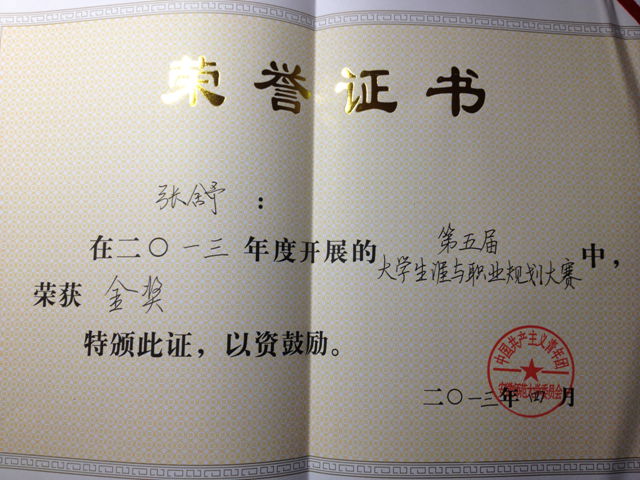 荣誉证书
张舒：
在二〇一三年度开展的第五届
大学生涯与职业规划大赛中，
荣获 金奖
特颁此证，以资鼓励。
中国共产主义青年团
安徽师范大学委员会
二〇一三年四月